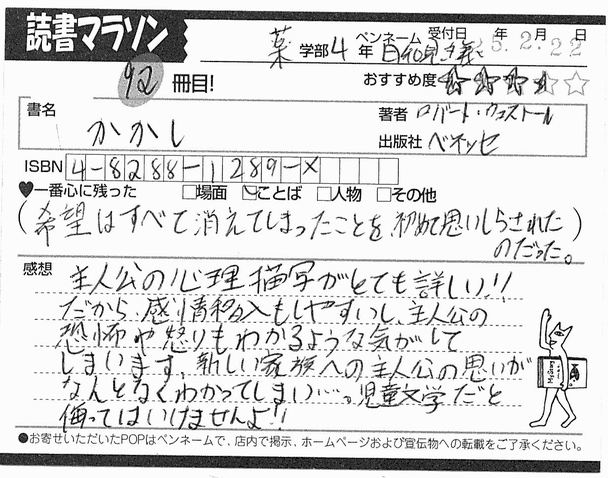 読書マラソン
92 冊目!
薬 学部 4 年 ペンネーム 日和見主義 受付日 '05年 2.月 22日
おすすめ度 ☆☆☆☆☆
書名 かかし
著者 ロバート・ウェストール
出版社 ベネッセ
ISBN 4-8288-1289-X
♥一番心に残った □場面 ☑ことば □人物 □その他
(希望はすべて消えてしまったことを、初めて思いしらされた
のだった。)
感想 主人公の心理描写がとても詳しい!!
だから、感情移入もしやすいし、主人公の
恐怖や怒りもわかるような気がして
しまいます。新しい家族への主人公の思いが
なんとなくわかってしまい…。児童文学だと
侮ってはいけませんよ!!
●お寄せいただいたPOPはペンネームで、店内で掲示、ホームページおよび宣伝物への転載をご了承ください。